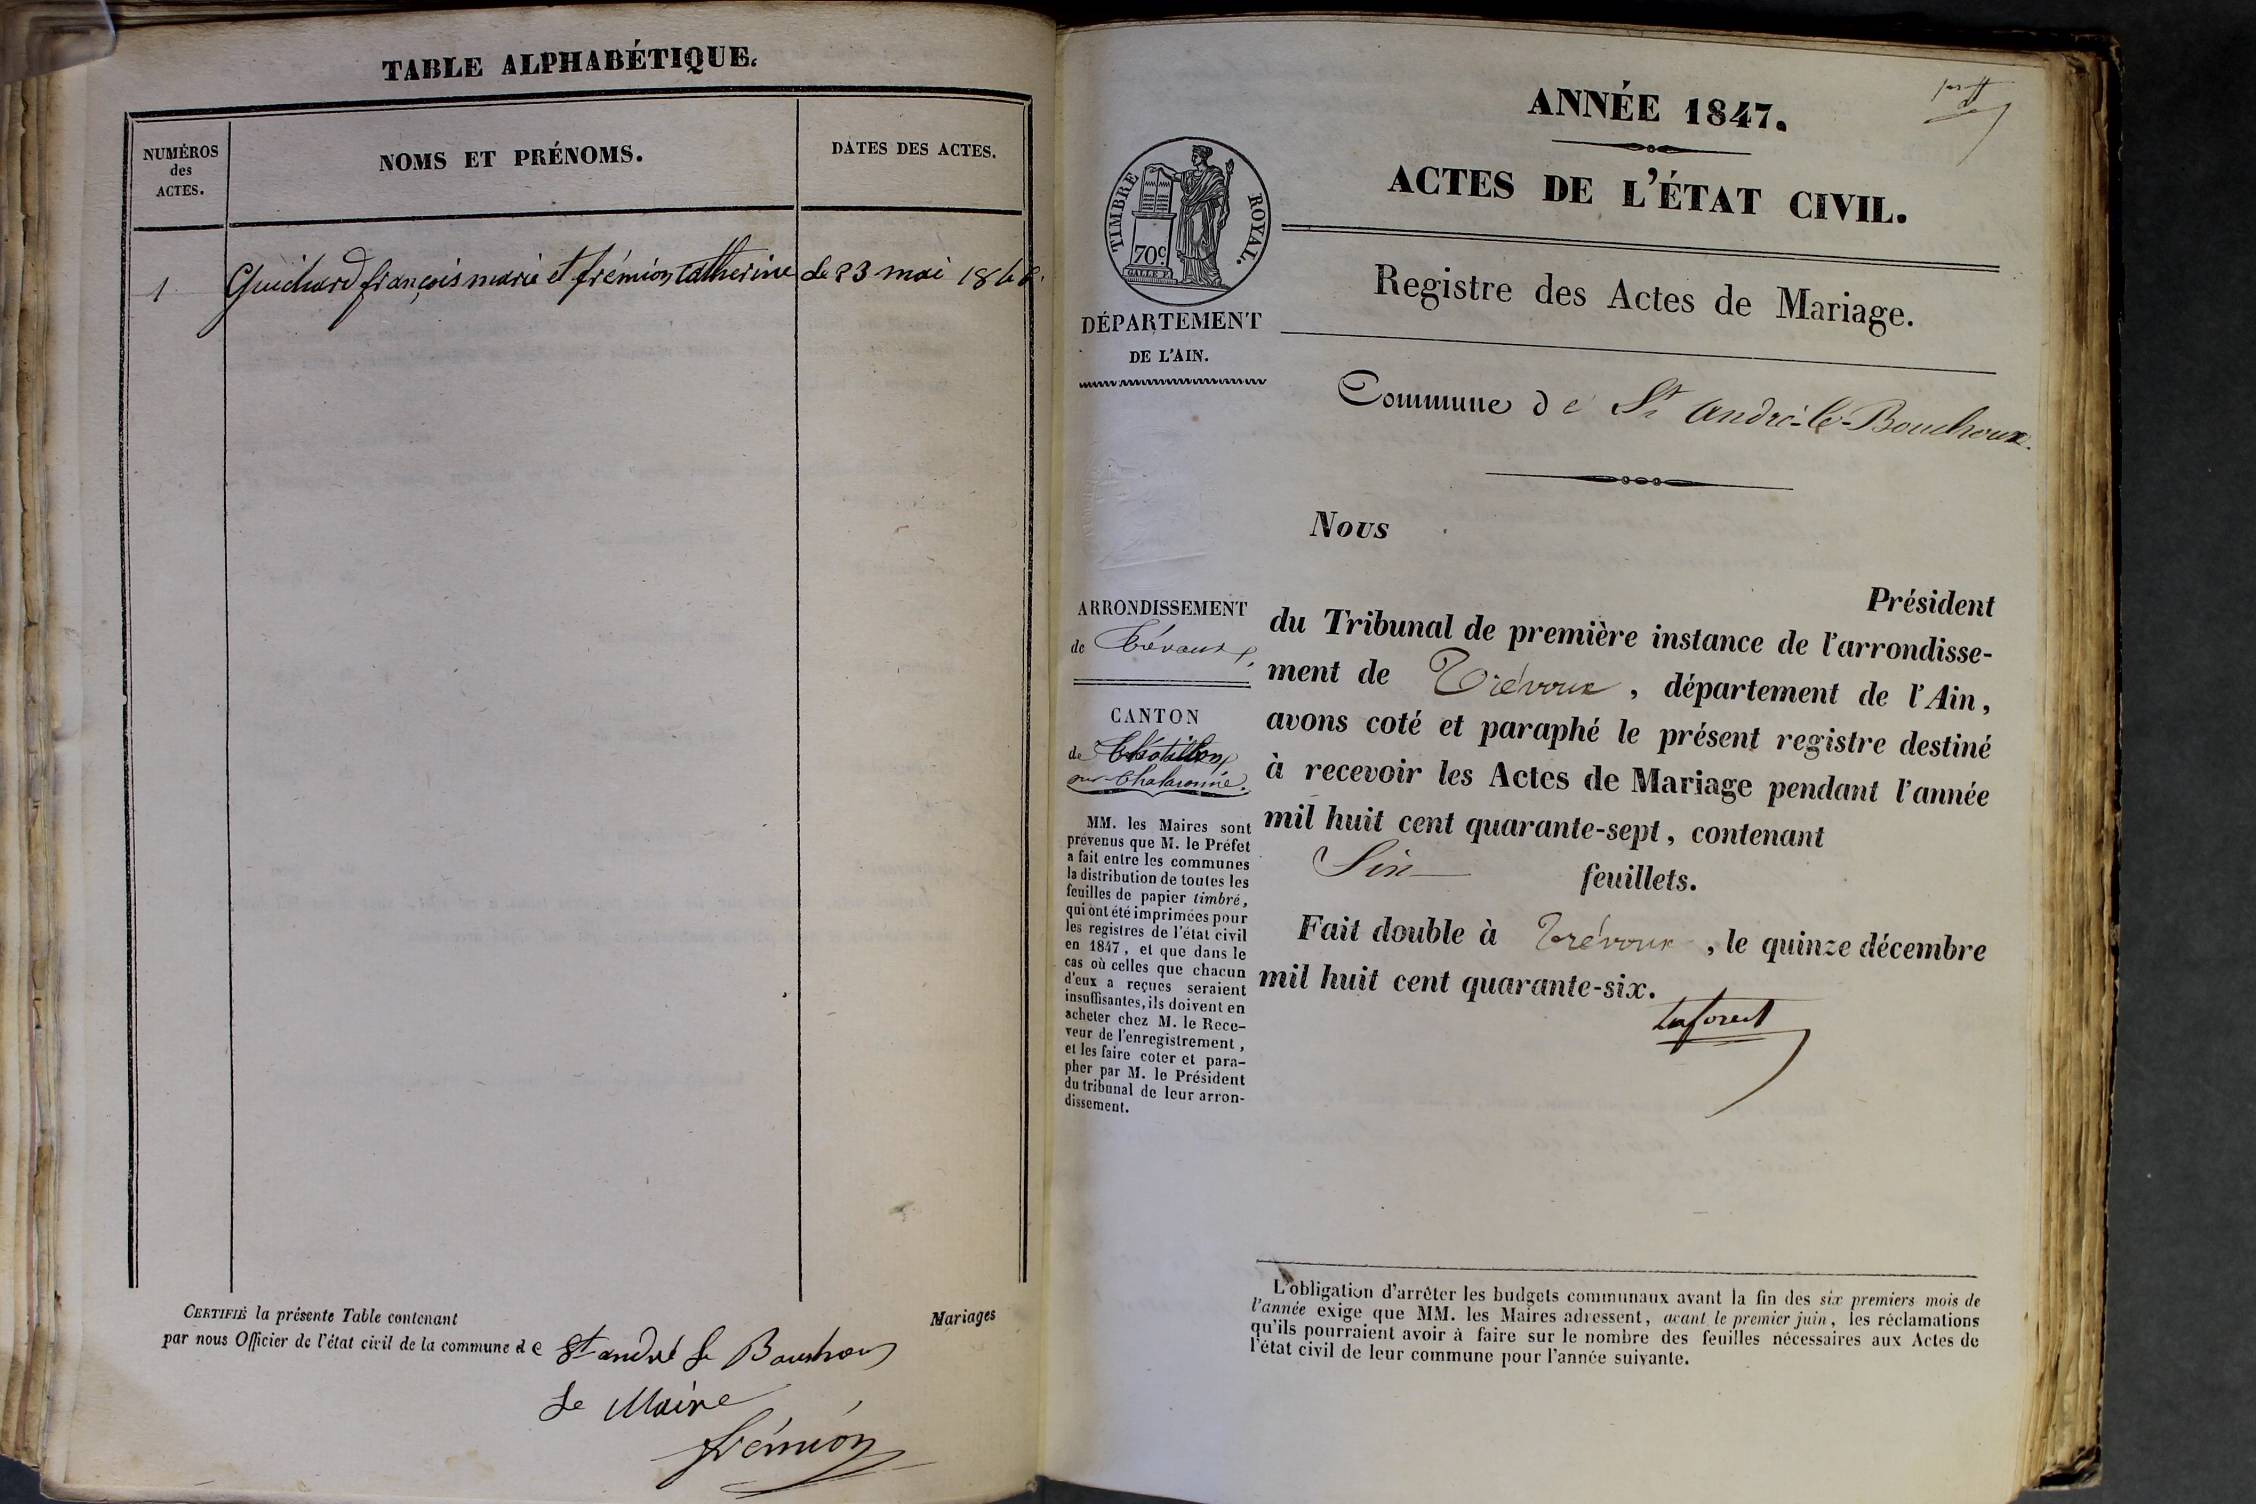 TABLE ALPHABÉTIQUE.
NUMÉROS
des
ACTES.
NOMS ET PRÉNOMS.
DATES DES ACTES.
1 Guichard françois marie et frémion Catherine le 23 mai 1846.
CERTIFIÉ la présente Table contenant Mariages
par nous Officier de l'état civil de la commune de St andré le Bouchoux
Le Maire
frémion
ANNÉE 1847.
ACTES DE L'ÉTAT CIVIL.
TIMBRE ROYAL.
70c.
Registre des Actes de Mariage.
DÉPARTEMENT
DE L'AIN.
Commune de St André-le-Bouchoux.
Nous
Président
du Tribunal de première instance de l'arrondisse-
ment de Trévoux, département de l'Ain,
avons coté et paraphé le présent registre destiné
à recevoir les Actes de Mariage pendant l'année
mil huit cent quarante-sept, contenant
Six feuillets.
Fait double à Trévoux, le quinze décembre
mil huit cent quarante-six.
Laforest
ARRONDISSEMENT
de Trévoux.
CANTON
de Châtillon
sur Chalaronne.
MM. les Maires sont
prévenus que M. le Préfet
a fait entre les communes
la distribution de toutes les
feuilles de papier timbré,
qui ont été imprimées pour
les registres de l'état civil
en 1847, et que dans le
cas où celles que chacun
d'eux a reçues seraient
insuffisantes, ils doivent en
acheter chez M. le Rece-
veur de l'enregistrement,
et les faire coter et para-
pher par M. le Président
du tribunal de leur arron-
dissement.
L'obligation d'arrêter les budgets communaux avant la fin des six premiers mois de
l'année exige que MM. les Maires adressent, avant le premier juin, les réclamations
qu'ils pourraient avoir à faire sur le nombre des feuilles nécessaires aux Actes de
l'état civil de leur commune pour l'année suivante.